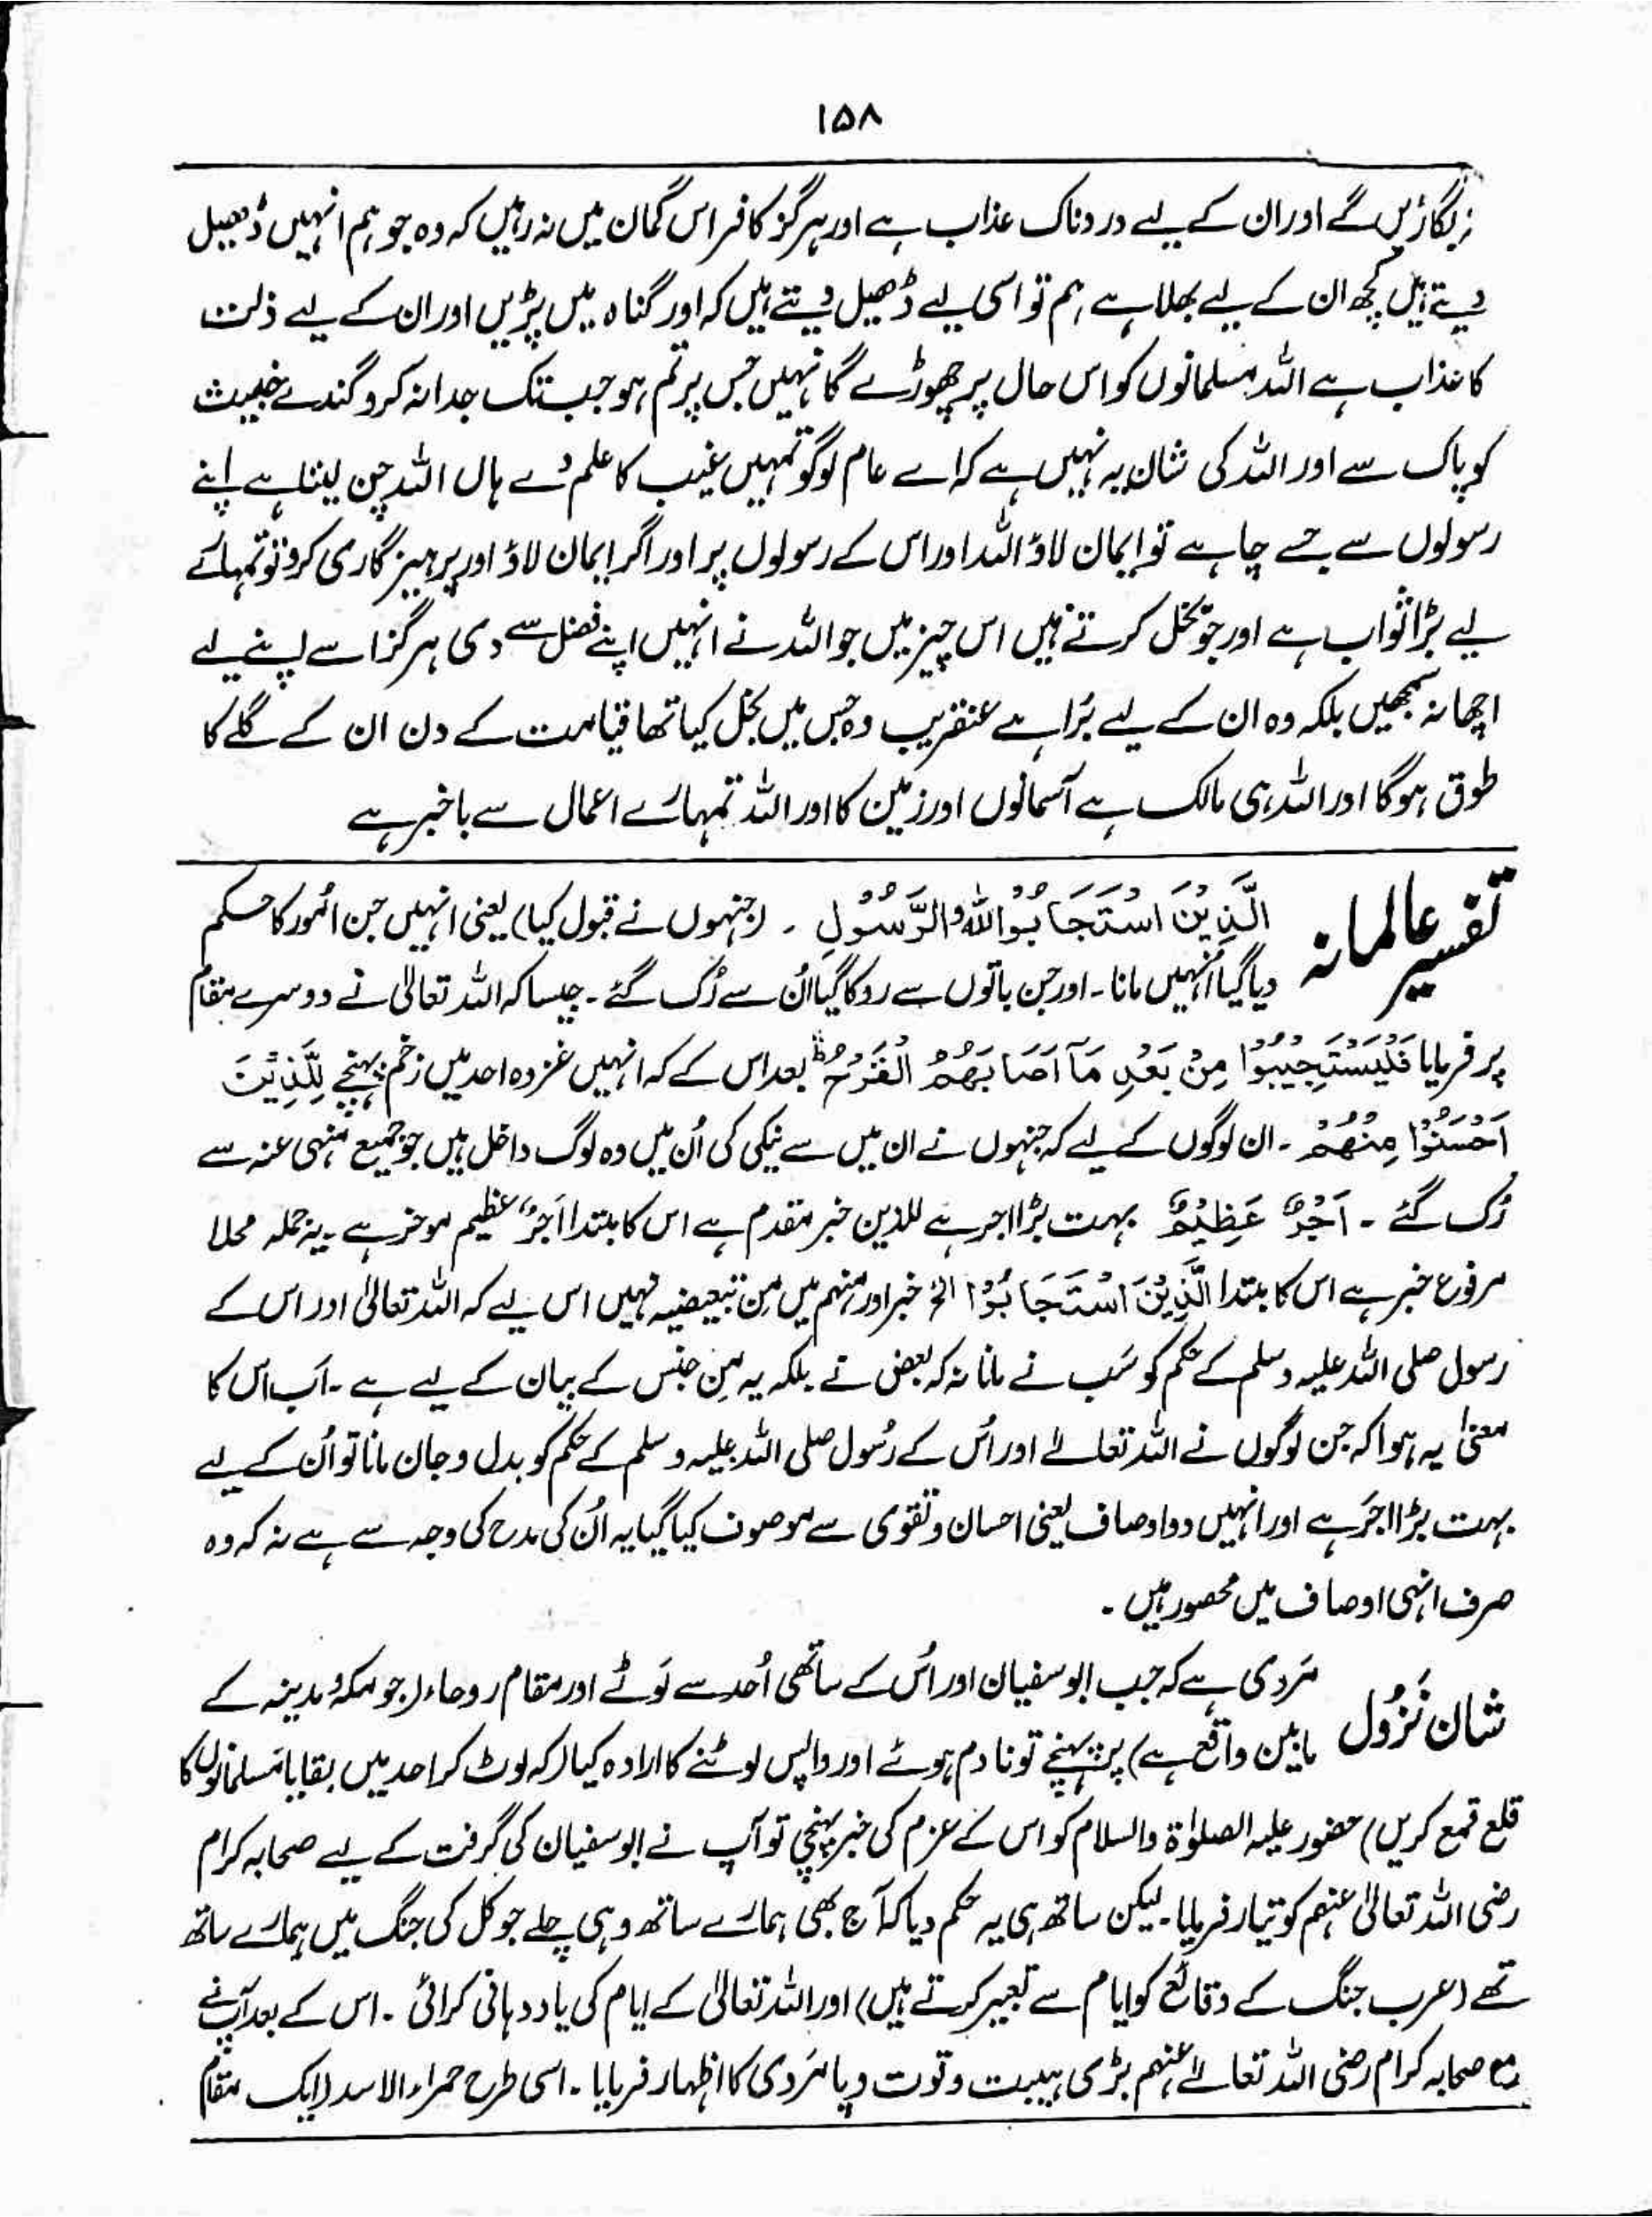 ۱۵۸
نہ بگاڑیں گے اور ان کے لیے دردناک عذاب ہے اور ہرگز کافر اس گمان میں نہ رہیں کہ وہ جو ہم انہیں ڈھیل
دیتے ہیں کچھ ان کے لیے بھلا ہے ہم تو اسی لیے ڈھیل دیتے ہیں کہ اور گناہ میں پڑیں اور ان کے لیے ذلت
کا عذاب ہے اللہ مسلمانوں کو اس حال پر چھوڑے گا نہیں جس پر تم ہو جب تک جدا نہ کرو گندے خبیث
کو پاک سے اور اللہ کی شان یہ نہیں ہے کہ اے عام لوگو تمہیں غیب کا علم دے ہاں اللہ چن لیتا ہے اپنے
رسولوں سے جسے چاہے تو ایمان لاؤ اللہ اور اس کے رسولوں پر اور اگر ایمان لاؤ اور پرہیز گاری کرو تو تمہارے
لیے بڑا ثواب ہے اور جو بخل کرتے ہیں اس چیز میں جو اللہ نے انہیں اپنے فضل سے دی ہرگز اسے اپنے لیے
اچھا نہ سمجھیں بلکہ وہ ان کے لیے بُرا ہے عنقریب وہ جس میں بخل کیا تھا قیامت کے دن ان کے گلے کا
طوق ہوگا اور اللہ ہی مالک ہے آسمانوں اور زمین کا اور اللہ تمہارے اعمال سے باخبر ہے
تفسیر عالمانہ
اَلَّذِیْنَ اسْتَجَابُوْا لِلّٰهِ وَالرَّسُوْلِ ۔ (جنہوں نے قبول کیا) یعنی انہیں جن اُمور کا حکم
دیا گیا اُنہیں مانا۔ اور جن باتوں سے روکا گیا اُن سے رُک گئے۔ جیسا کہ اللہ تعالیٰ نے دوسرے مقام
پر فرمایا فَلْیَسْتَجِیْبُوْا مِنْۢ بَعْدِ مَاۤ اَصَابَهُمُ الْقَرْحُ ؕ بعد اس کے کہ انہیں غزوہ احد میں زخم پہنچے لِلَّذِیْنَ
اَحْسَنُوْا مِنْهُمْ ۔ ان لوگوں کے لیے کہ جنہوں نے ان میں سے نیکی کی اُن میں وہ لوگ داخل ہیں جو جمیع منہی عنہ سے
رُک گئے ۔ اَجْرٌ عَظِیْمٌ بہت بڑا اجر ہے للذین خبر مقدم ہے اس کا مبتدا اَجْرٌ عظیم موخر ہے ۔ یہ جملہ محلا
مرفوع خبر ہے اس کا مبتدا الَّذِیْنَ اسْتَجَابُوْا الخ خبر اور منہم میں مِن تبعیضیہ نہیں اس لیے کہ اللہ تعالیٰ اور اس کے
رسول صلی اللہ علیہ وسلم کے حکم کو سَب نے مانا نہ کہ بعض نے بلکہ یہ مِن جنس کے بیان کے لیے ہے ۔ اَب اس کا
معنیٰ یہ ہوا کہ جن لوگوں نے اللہ تعالےٰ اور اُس کے رُسول صلی اللہ علیہ وسلم کے حکم کو بدل و جان مانا تو اُن کے لیے
بہت بڑا اجَر ہے اور انہیں دو اوصاف یعنی احسان و تقویٰ سے موصوف کیا گیا یہ اُن کی مدح کی وجہ سے ہے نہ کہ وہ
صرف انہی اوصاف میں محصور ہیں ۔
شان نَزُول
مَروی ہے کہ جب ابو سفیان اور اُس کے ساتھی اُحد سے لَوٹے اور مقام روحاء (جو مکہ و مدینہ کے
مابین واقع ہے) پر پہنچے تو نادم ہوئے اور واپس لوٹنے کا ارادہ کیا (کہ لوٹ کر احد میں بقایا مُسلمانوں کا
قلع قمع کریں) حضور علیہ الصلوٰۃ والسلام کو اس کے عزم کی خبر پہنچی تو آپ نے ابو سفیان کی گرفت کے لیے صحابہ کرام
رضی اللہ تعالیٰ عنہم کو تیار فرمایا ۔ لیکن ساتھ ہی یہ حکم دیا کہ آج بھی ہمارے ساتھ وہی چلے جو کل کی جنگ میں ہمارے ساتھ
تھے (عرب جنگ کے وقائع کو ایام سے تعبیر کرتے ہیں) اور اللہ تعالیٰ کے ایام کی یاد دہانی کرائی ۔ اس کے بعد آپ نے
مع صحابہ کرام رضی اللہ تعالےٰ عنہم بڑی ہیبت و قوت و پامَردی کا اظہار فرمایا ۔ اسی طرح حمراء الاسد (ایک مقام